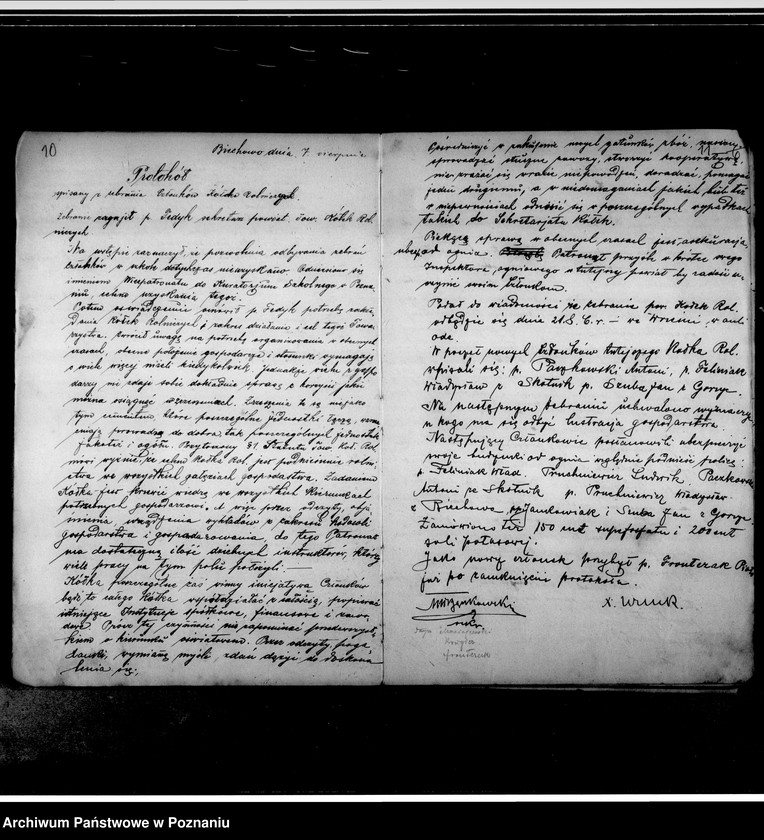 10
Biechowo dnia 7. sierpnia
Protokół
spisany z zebrania Członków Kółka Rolniczych.
Zebranie zagaił p. Fedyk sekretarz powiat. Tow. Kółek Rol
niczych
Na wstępie zaznaczył, że pozwolenia odbywania zebrań
członków w szkole dotychczas nie uzyskano. Odniesiono się
imieniem Wicepatronatu do Kuratorjum Szkolnego w Pozna
niu, celem uzyskania tegoż.
Potem oświadczeniu omówił p. Fedyk potrzebę zakła
dania Kółek Rolniczych, zakres działania i cel tegoż Towa
rzystwa. Zwrócił uwagę na potrzebę organizowania w obecnych
czasach, obecne położenie gospodarcze i stosunki wymagają
o wiele więcej niżeli kiedykolwiek. Jednakże wielu z gospo
darzy nie zdaje sobie dokładnie sprawę z korzyści jakie
można osiągnąć w zrzeszeniach. Zrzeszenie to są niejako
tym cementem, które poszczególne jednostki łączą,
prowadzą do dobra, tak poszczególnych jednostek
jakoteż i ogółu. Przytoczony § 1 Statutu Tow. Kół. Rol.
mówi wyraźnie, że celem Kółka Rol. jest podniesienie rolni
ctwa we wszystkich gałęziach gospodarstwa. Zadaniem
Kółka jest krzewić wiedzę we wszystkich kierunkach
potrzebnych gospodarzowi. A więc przez odczyty,
urządzenia wykładów z zakresu hodowli
gospodarstwa i gospodarowania, do tego Patronat
ma dostateczną ilość dzielnych instruktorów, którzy
wiele pracy na tym polu położyli. —
Kółka poszczególne zaś winny inicjatywą Członków
być to całego Kółka współdziałać z całością, popierać
istniejące Instytucje spółkowe, finansowe i zawo
dowe. Prócz tej czynności nie zapominać
o kierunku oświatowym. Przez odczyty, poga
danki, wymianę myśli, zdań dążyć do doskona
lenia się.
11
Pośredniczyć w zakupnie nowych gatunków zbóż,
sprowadzać sztuczne nawozy, stworzyć kooperatywę
nie zrażać się wcale niepowodzeń, doradzać, pomagać
jeden drugiemu, a w niedomaganiach jakich bądź też
w niepewnościach odnosić się w poszczególnych wypadkach
takich do Sekretarjatu Kółek.
Piekącą sprawą w obecnych czasach jest asekuracja
od ognia. Patronat przyśle w krótce swego
Inspektora, ogniowego w tutejszy powiat by radził u
czynić swoim członkom.
Podał do wiadomości że zebranie pow. Kółek Rol.
odbędzie się dnia 28. 8. b. r. - we Wrześni, o
ode.
W poczet nowych członków tutejszego Kółka Rol.
wpisali się: p. Paczkowski Antoni, p. Feliniak
Władysław z Skotnik p. Szuba Jan z Gorzyc.
Na następnym zebraniu uchwalono wyznaczyć
u kogo ma się odbyć lustracja gospodarstwa.
Następujący Członkowie postanowili ubezpieczyć
swoje budynki od ognia względnie podnieść polisę:
p. Feliniak Wład. Pruchniewicz Ludwik, Paczkowski
Antoni ze Skotnik p. Pruchniewicz Władysław
z Biechowa, Jankowiak i Szuba Jan z Gorzyc.
Zamówiono też 150 cnt supefosfatu i 200 cnt
soli potasowej.
Jako nowy członek przybył p. Frontczak
już po zamknięciu protokołu.
X. Wruk.
sekr.
Frontczak
Archiwum Państwowe w Poznaniu